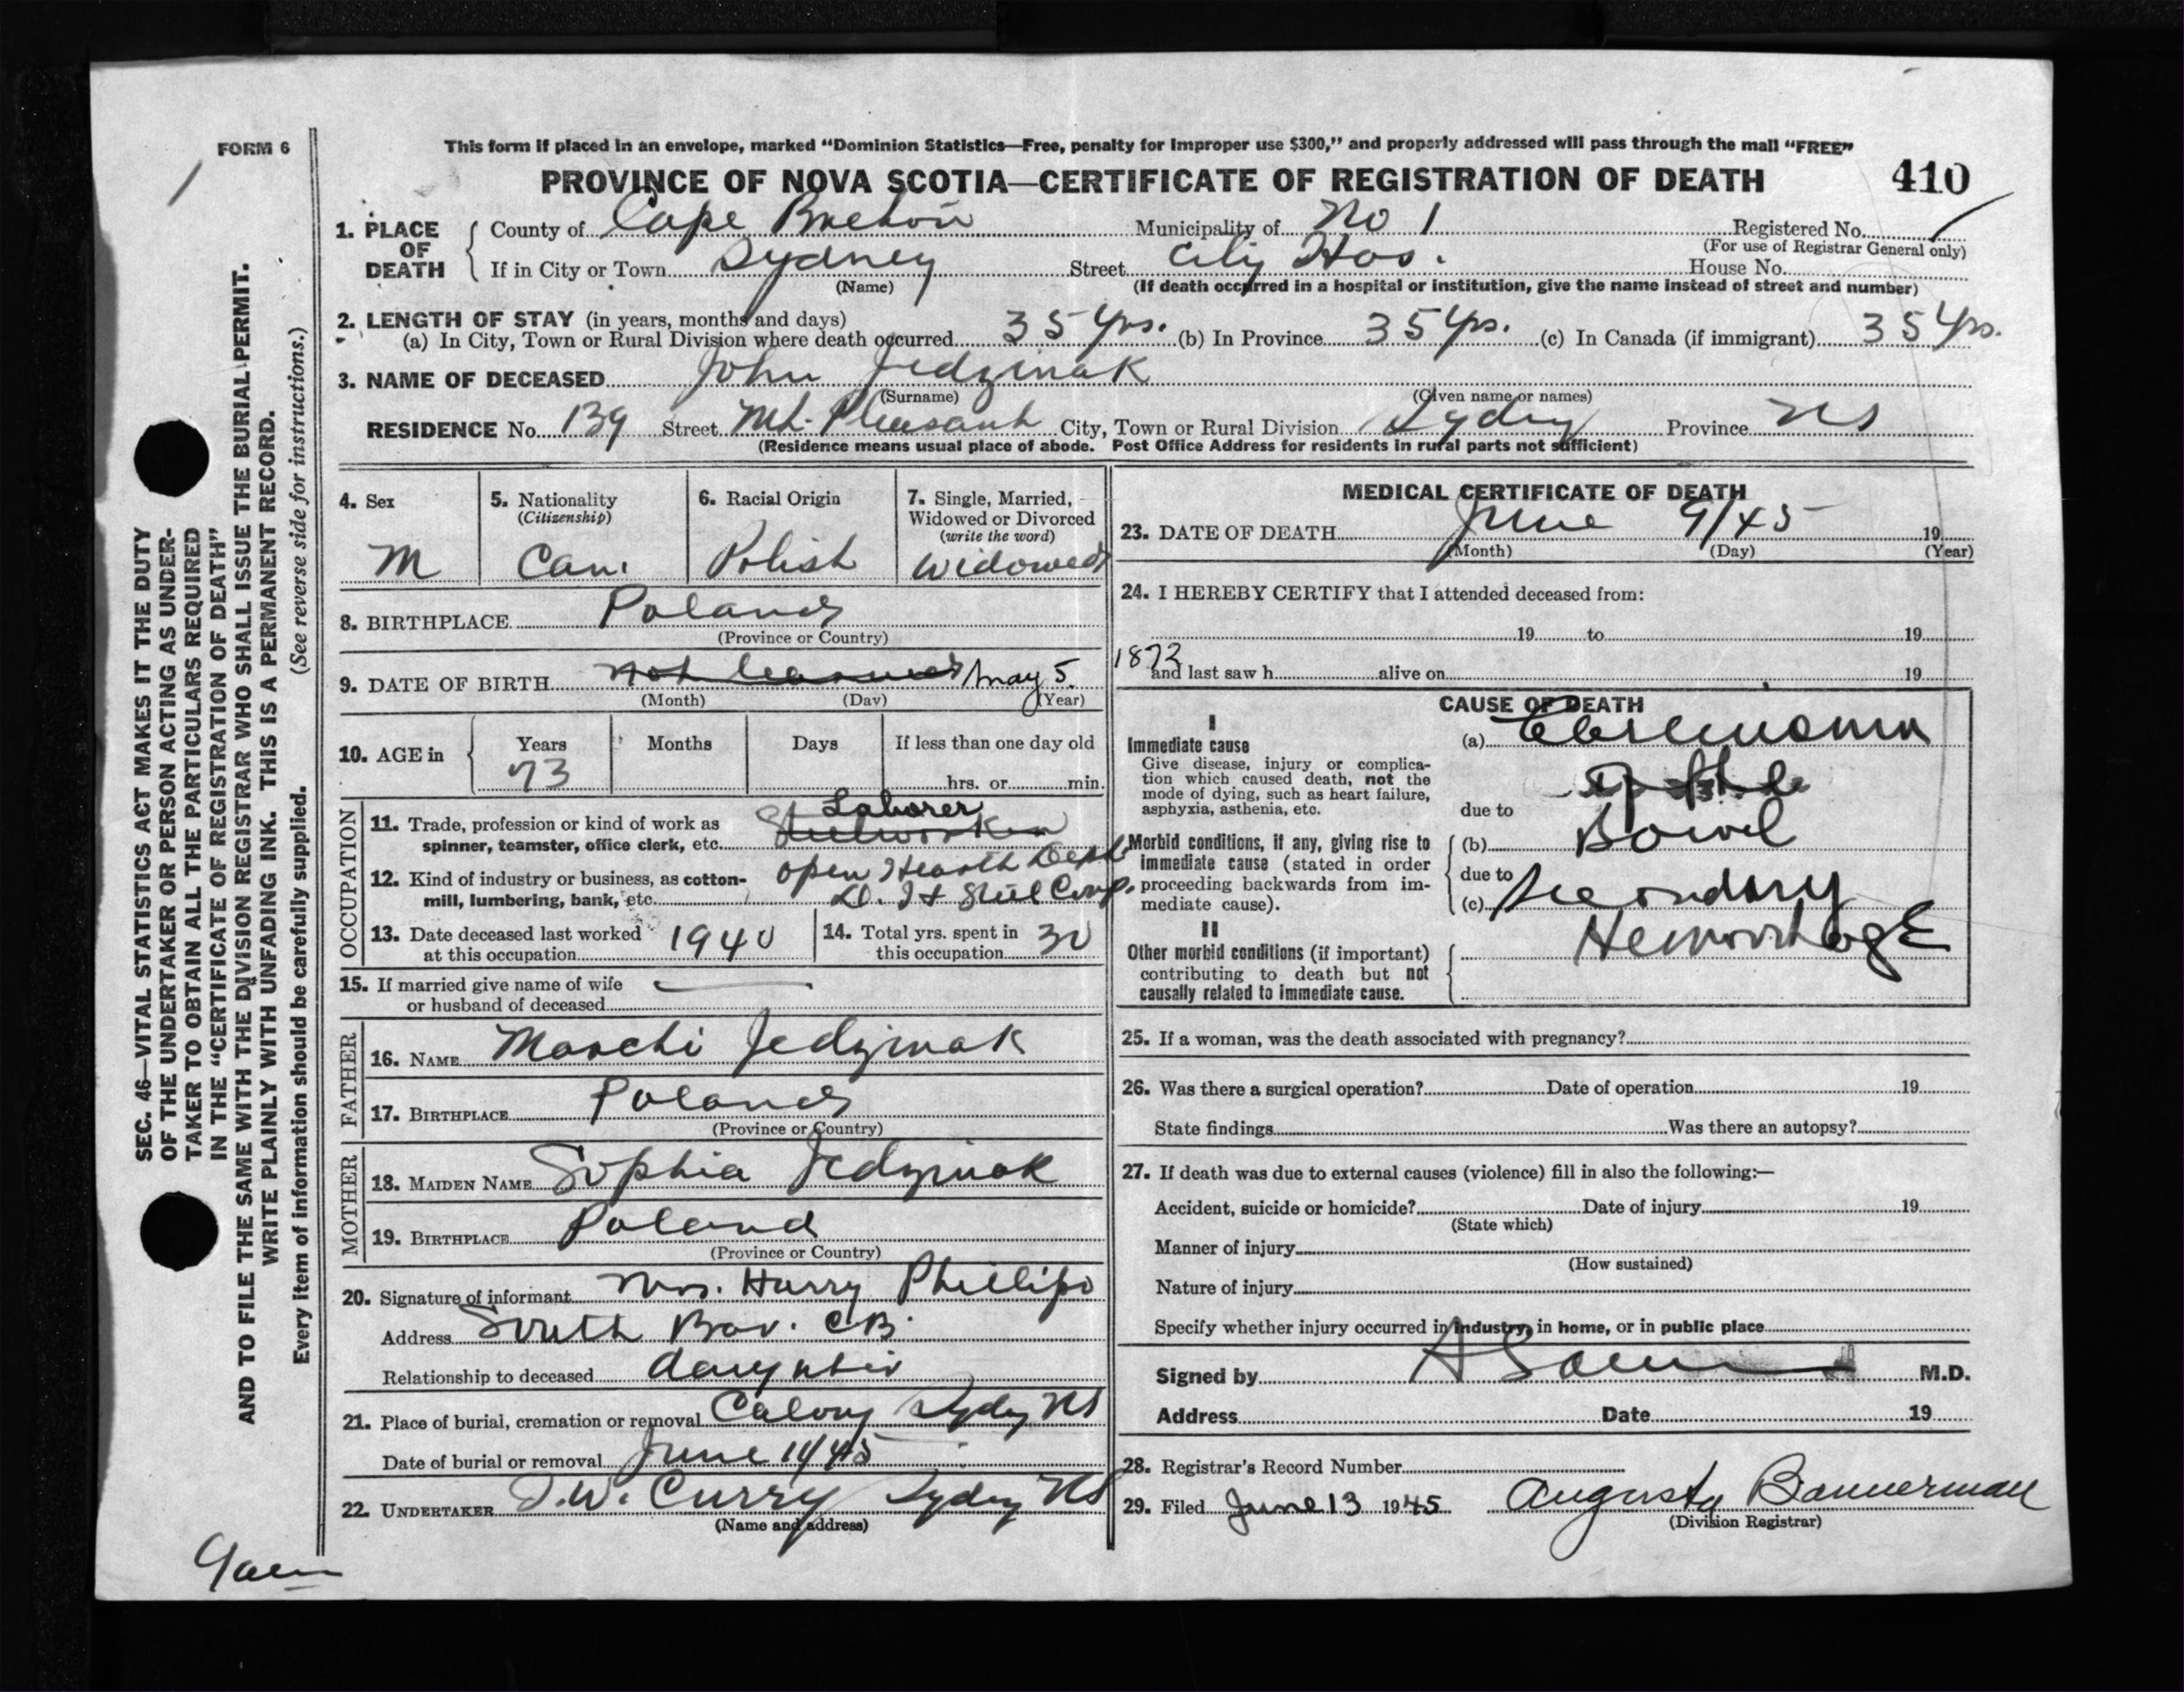 FORM 6
This form if placed in an envelope, marked “Dominion Statistics—Free, penalty for improper use $300,” and properly addressed will pass through the mail “FREE”
PROVINCE OF NOVA SCOTIA—CERTIFICATE OF REGISTRATION OF DEATH 410
1. PLACE OF DEATH County of Cape Breton Municipality of No 1 Registered No.
(For use of Registrar General only)
If in City or Town Sydney Street City Hos. House No.
(Name) (If death occurred in a hospital or institution, give the name instead of street and number)
2. LENGTH OF STAY (in years, months and days)
(a) In City, Town or Rural Division where death occurred 35 yrs. (b) In Province 35 yrs. (c) In Canada (if immigrant) 35 yrs.
3. NAME OF DECEASED John Jedzinak
(Surname) (Given name or names)
RESIDENCE No. 139 Street Mt. Pleasant City, Town or Rural Division Sydney Province NS
(Residence means usual place of abode. Post Office Address for residents in rural parts not sufficient)
4. Sex
M
5. Nationality
(Citizenship)
Can.
6. Racial Origin
Polish
7. Single, Married,
Widowed or Divorced
(write the word)
Widowed
8. BIRTHPLACE Poland
(Province or Country)
9. DATE OF BIRTH May 5. 1872
(Month) (Day) (Year)
10. AGE in Years Months Days If less than one day old
73 hrs. or min.
OCCUPATION
11. Trade, profession or kind of work as Laborer
spinner, teamster, office clerk, etc. Steelworker
12. Kind of industry or business, as cotton- Open Hearth Dept.
mill, lumbering, bank, etc. D. I + Steel Corp.
13. Date deceased last worked
at this occupation 1940
14. Total yrs. spent in
this occupation 30
15. If married give name of wife
or husband of deceased
FATHER
16. NAME Marchi Jedzinak
17. BIRTHPLACE Poland
(Province or Country)
MOTHER
18. MAIDEN NAME Sophia Jedzinak
19. BIRTHPLACE Poland
(Province or Country)
20. Signature of informant Mrs. Harry Phillips
Address South Bar. C.B.
Relationship to deceased daughter
21. Place of burial, cremation or removal Calvary Sydney NS
Date of burial or removal June 11/45
22. UNDERTAKER Curry Sydney NS
(Name and address)
MEDICAL CERTIFICATE OF DEATH
23. DATE OF DEATH June 9/45 19
(Month) (Day) (Year)
24. I HEREBY CERTIFY that I attended deceased from:
19 to 19
and last saw h alive on 19
CAUSE OF DEATH
I
Immediate cause
Give disease, injury or complica-
tion which caused death, not the
mode of dying, such as heart failure,
asphyxia, asthenia, etc.
(a)
due to
Morbid conditions, if any, giving rise to
immediate cause (stated in order
proceeding backwards from im-
mediate cause).
(b) Bowel
due to
(c) Secondary
Hemorrhage
II
Other morbid conditions (if important)
contributing to death but not
causally related to immediate cause.
25. If a woman, was the death associated with pregnancy?
26. Was there a surgical operation? Date of operation 19
State findings Was there an autopsy?
27. If death was due to external causes (violence) fill in also the following:—
Accident, suicide or homicide? Date of injury 19
(State which)
Manner of injury
(How sustained)
Nature of injury
Specify whether injury occurred in industry, in home, or in public place
Signed by M.D.
Address Date 19
28. Registrar's Record Number
29. Filed June 13 1945 Augusta Bannerman
(Division Registrar)
SEC. 46—VITAL STATISTICS ACT MAKES IT THE DUTY
OF THE UNDERTAKER OR PERSON ACTING AS UNDER-
TAKER TO OBTAIN ALL THE PARTICULARS REQUIRED
IN THE “CERTIFICATE OF REGISTRATION OF DEATH”
AND TO FILE THE SAME WITH THE DIVISION REGISTRAR WHO SHALL ISSUE THE BURIAL PERMIT.
WRITE PLAINLY WITH UNFADING INK. THIS IS A PERMANENT RECORD.
Every item of information should be carefully supplied. (See reverse side for instructions.)